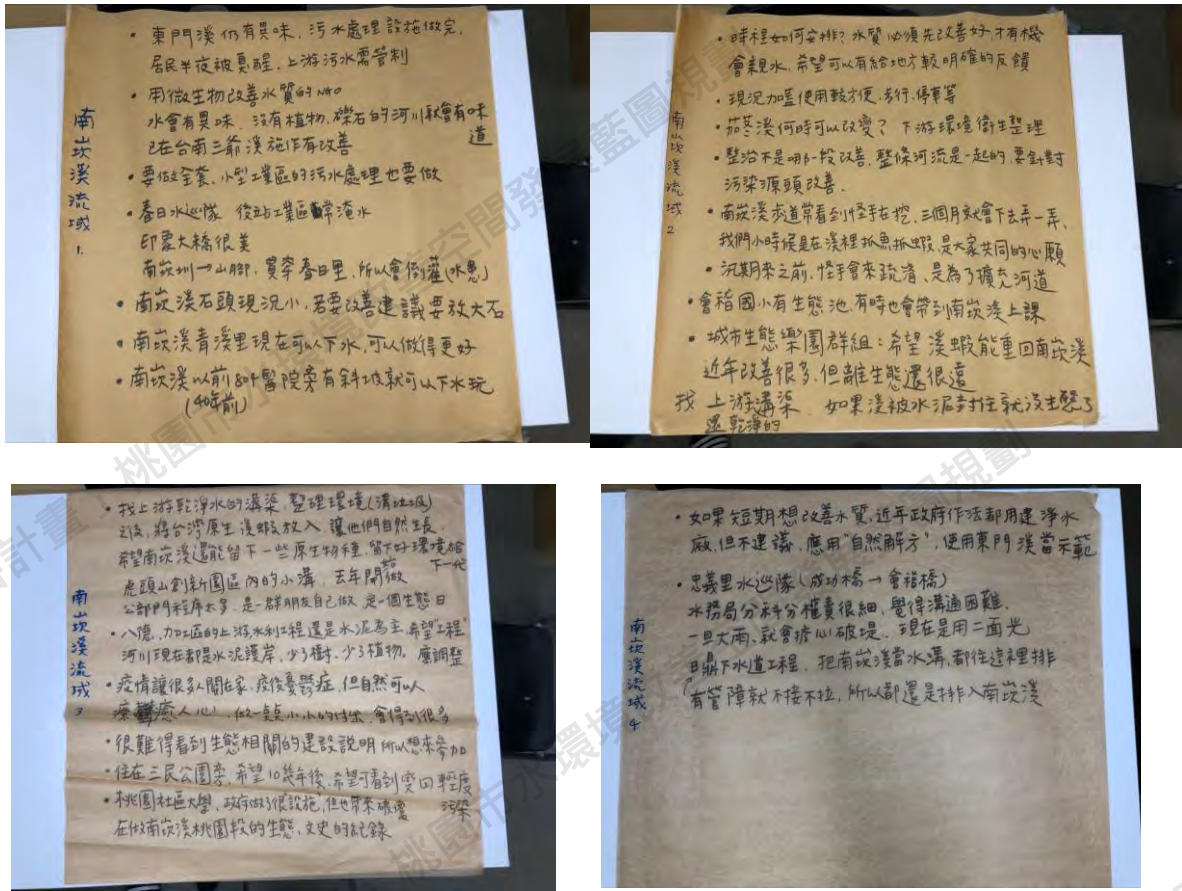 南崁溪流域 1.
• 東門溪仍有異味，污水處理設施做完，
居民半夜被臭醒，上游污水需管制
• 用微生物改善水質的NGO
水會有異味，沒有植物，礫石的河川就會有味道
已在台南三爺溪施作有改善
• 要做全套、小型工業區的污水處理也要做
• 春日水巡隊 後站工業區常淹水
印象大橋很美
南崁圳→山腳，貫穿春日里，所以會倒灌(水患)
• 南崁溪石頭現況小，若要改善建議要放大石
• 南崁溪青溪里現在可以下水，可以做得更好
• 南崁溪以前804醫院旁有斜坡就可以下水玩
(40年前)
南崁溪流域 2
• 時程如何安排？水質必須先改善好，才有機
會親水，希望可以有給地方較明確的反饋
• 現況加蓋使用較方便，步行、停車等
• 茄苳溪何時可以改變？下游環境衛生整理
• 整治不是哪一段改善，整條河流是一起的，要針對
污染源頭改善。
• 南崁溪步道常看到怪手在挖，三個月就會下去弄一弄，
我們小時候是在溪裡抓魚抓蝦，是大家共同的心願
• 汛期來之前，怪手會來疏濬，是為了擴充河道
• 會稽國小有生態池，有時也會帶到南崁溪上課
• 城市生態樂園群組：希望溪蝦能重回南崁溪
近年改善很多，但離生態還很遠
找 上游溝渠 如果溪被水泥封住就沒生態了
還乾淨的
南崁溪流域 3
• 找上游乾淨水的溝渠，整理環境(清垃圾)
之後，將台灣原生溪蝦放入 讓他們自然生長
希望南崁溪還能留下一些原生物種，留下好環境給下一代
虎頭山創新園區內的小溝，去年開始做
公部門程序太多，是一群朋友自己做，定一個生態日
• 八德，加工區的上游水利工程還是水泥為主，希望"工程"
河川現在都是水泥護岸，少了樹，少了植物。應調整
• 疫情讓很多人關在家，疫後憂鬱症，但自然可以
療癒人心，做一點點小小的付出，會得到很多
• 很難得看到生態相關的建設說明 所以想來參加
• 住在三民公園旁，希望10幾年後，希望可看到變回輕度污染
• 桃園社區大學，政府做了很設施，但也帶來破壞
在做南崁溪桃園段的生態、文史的紀錄
南崁溪流域 4
• 如果短期想改善水質，近年政府作法都用建淨水
廠，但不建議，應用"自然解方"，使用東門溪當示範
• 忠義里水巡隊(成功橋→會稽橋)
水務局分科分權責很細，覺得溝通困難，
一旦大雨，就會擔心破堤，現在是用二面光
日鼎下水道工程，把南崁溪當水溝，都往這裡排
有管障就不接不拉，所以都還是排入南崁溪